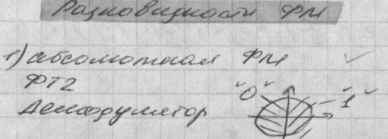 Разновидности ФМ
1) абсолютная ФМ
ФТ2 "0" "1"
Демодулятор